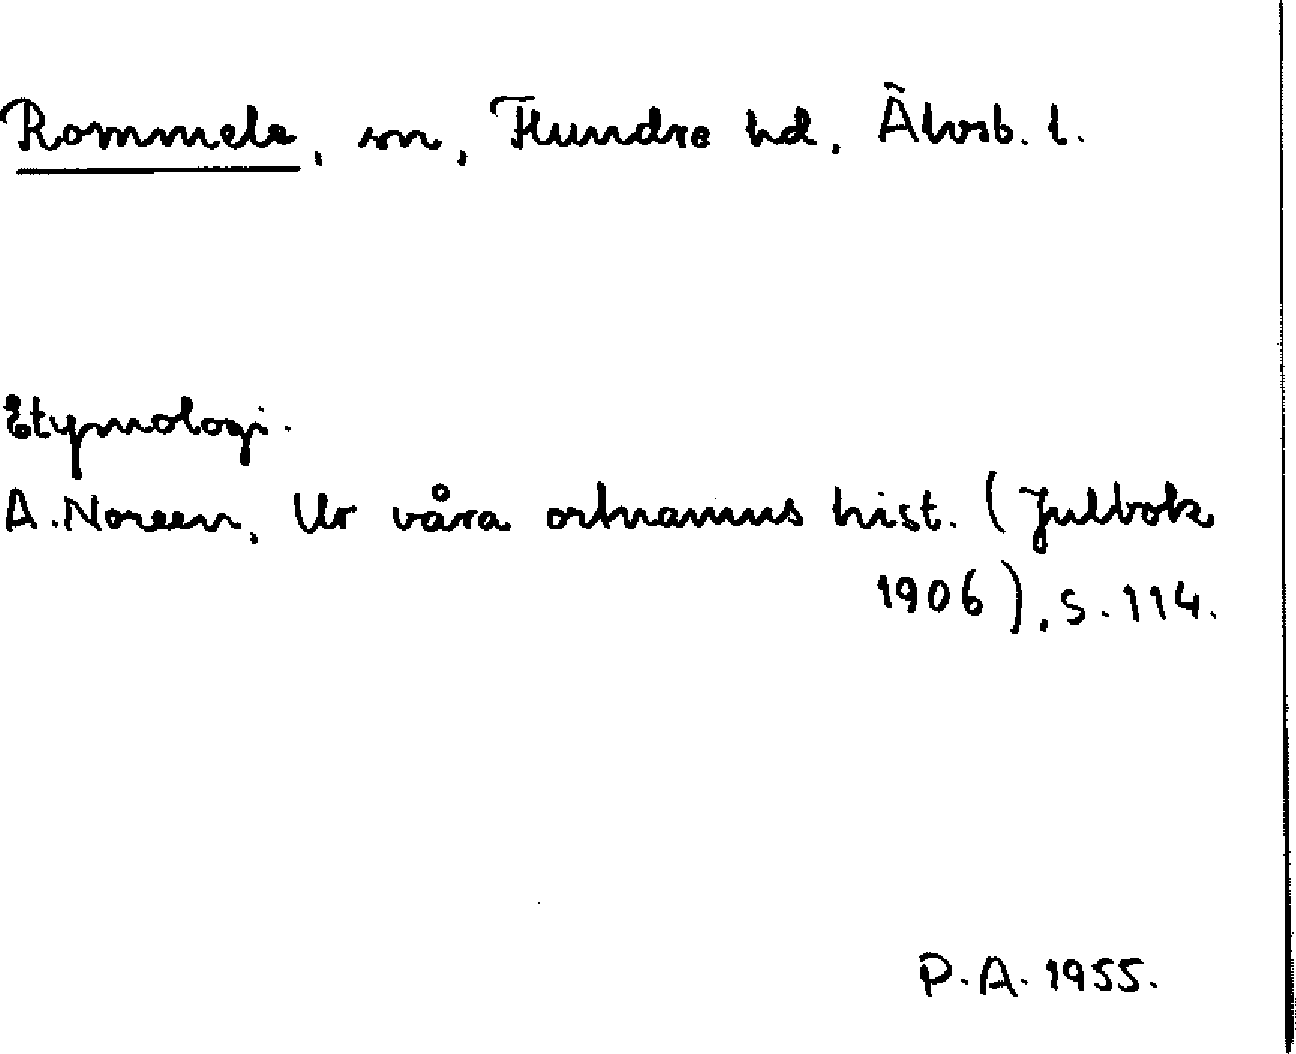 Rommele, sn, Flundre hd, Älvsb. l.
Etymologi.
A. Noreen, Ur våra ortnamns hist. (Julbok
1906), s. 114.
P. A. 1955.